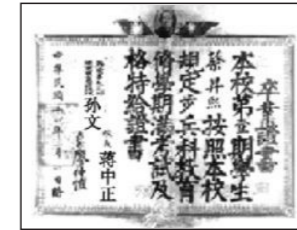 卒業證書
本校第壹期學生
蔡昇熙按照本校
規定步兵科教育
修學期滿考試及
格特給證書
孙文
校長 蔣中正
廖仲愷
中華民國